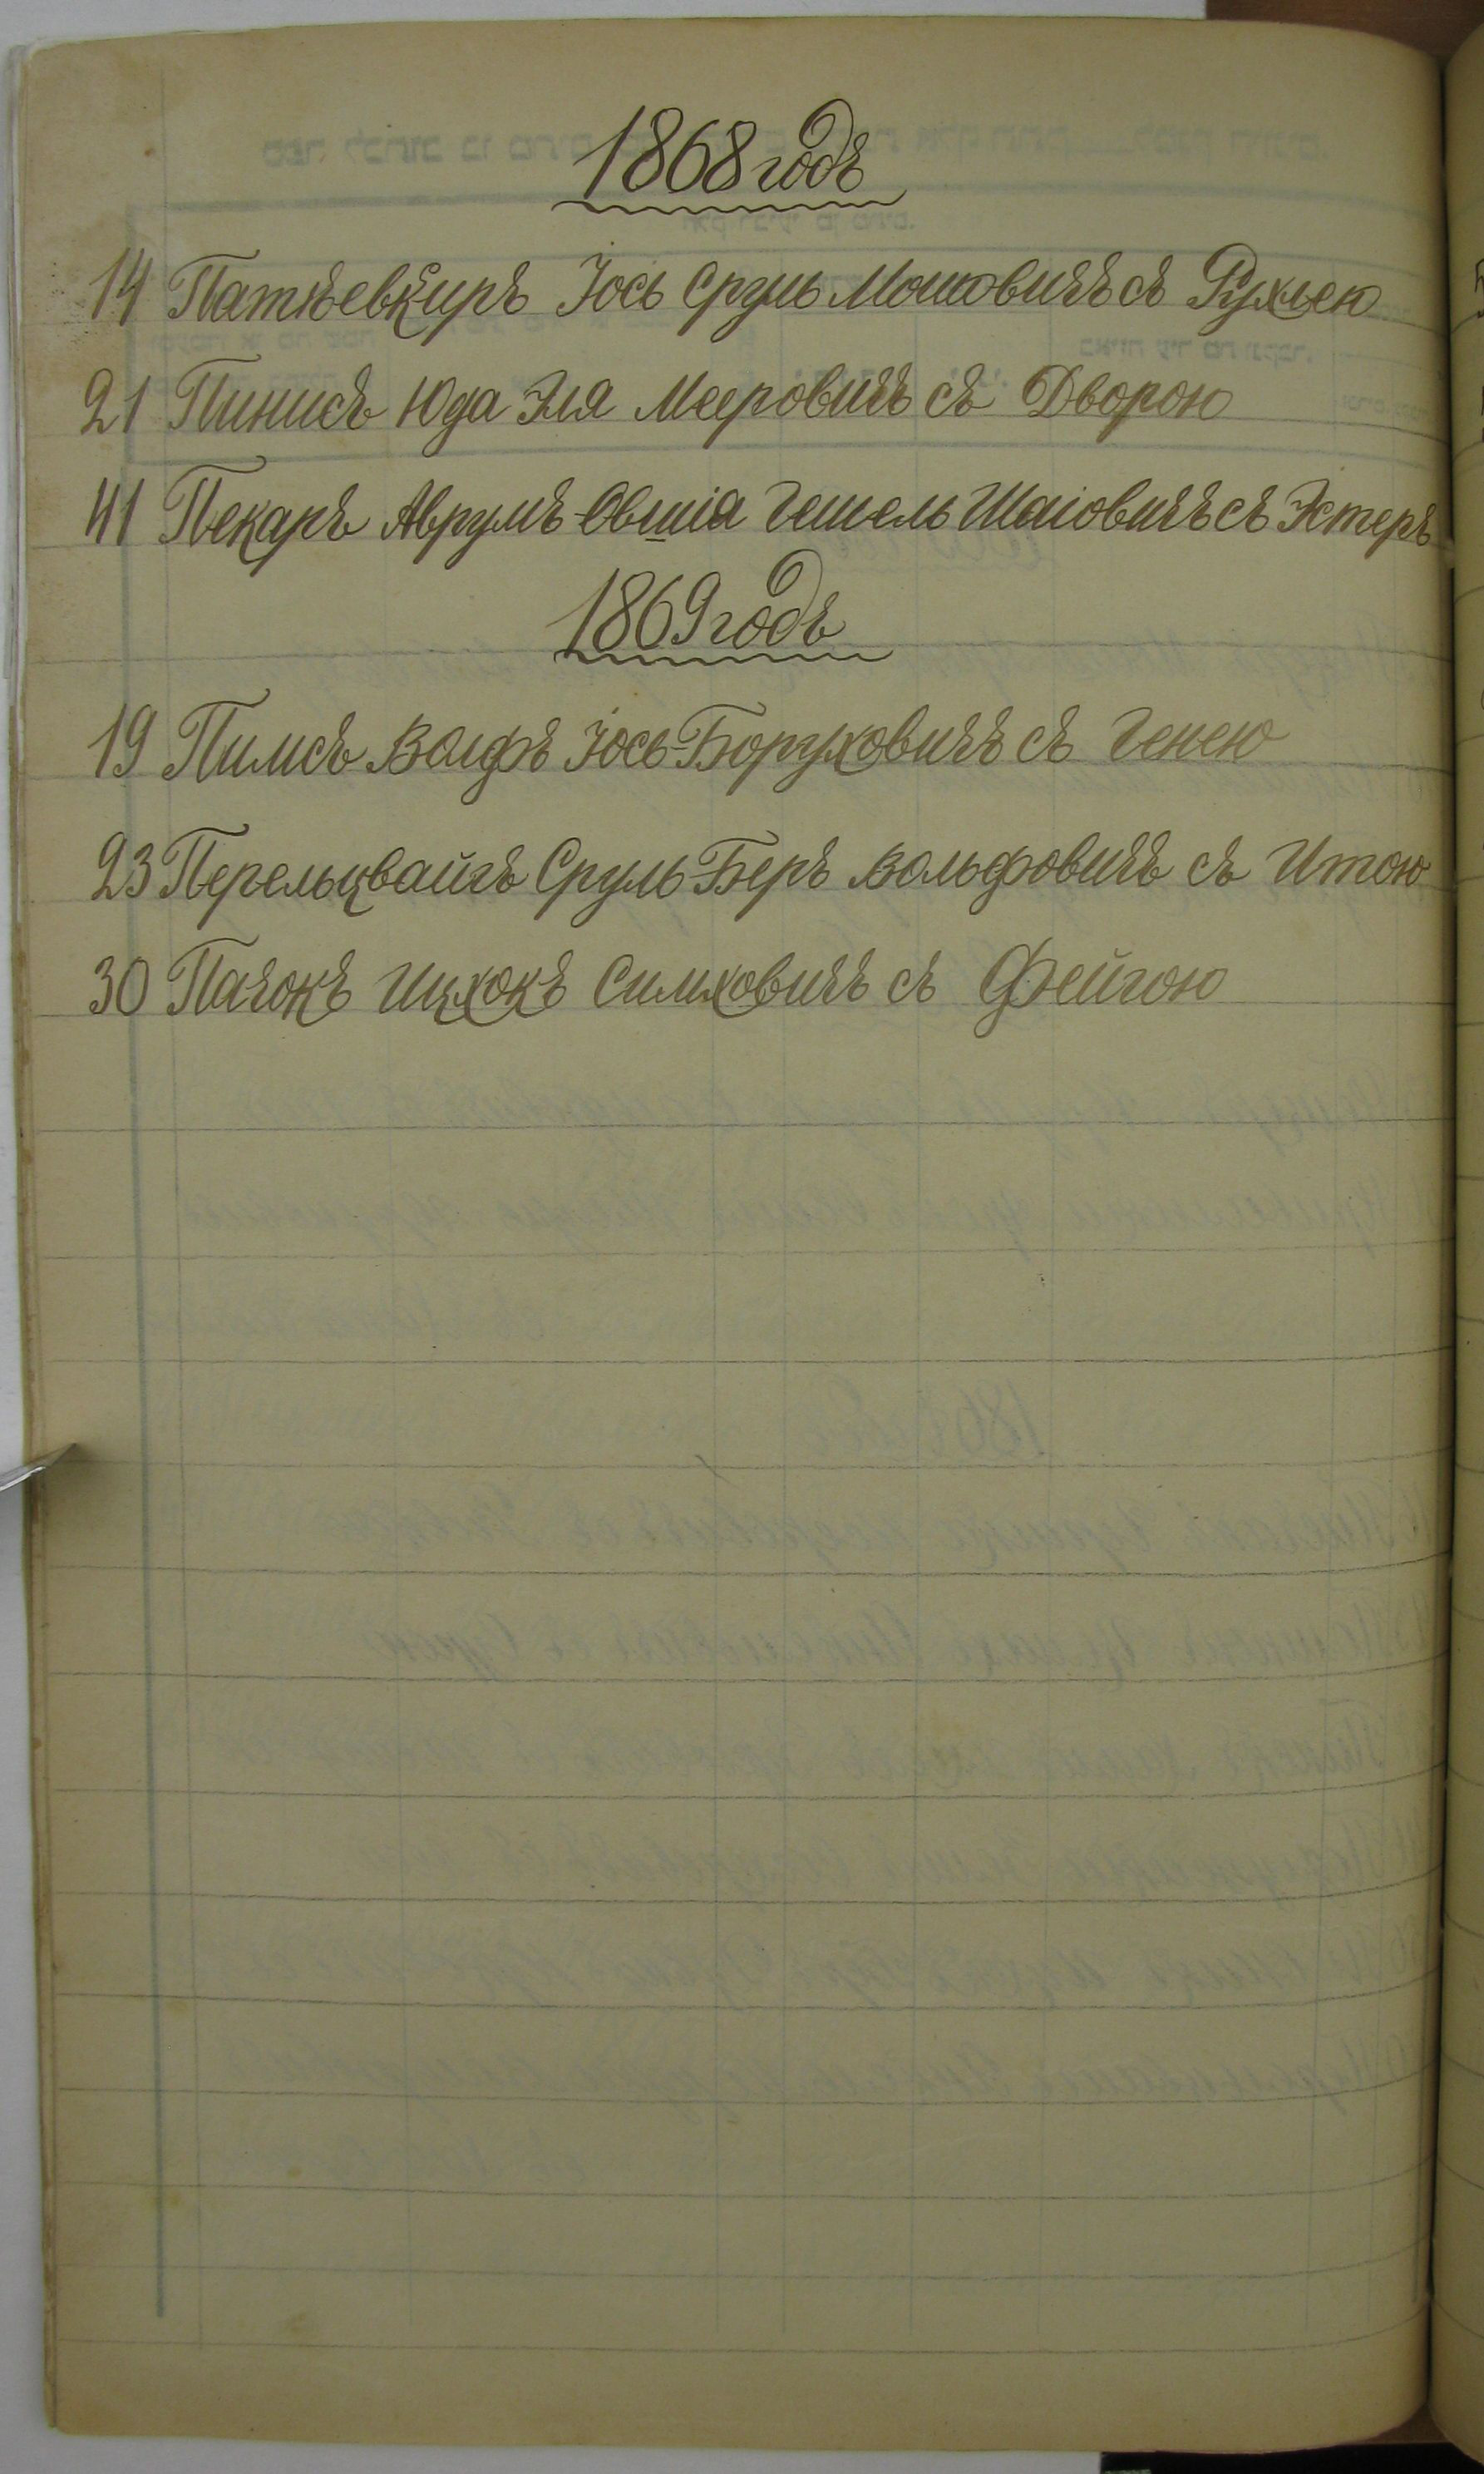 1868 годъ
14 Патіевкеръ Іось Сруль Мошковичъ съ Рухлею
21 Пинисъ Юда Эля Мееровичъ съ Дворою
41 Пекаръ Аврумъ-Овшіа Гешель Шаіовичъ съ Эстеръ
1869 годъ
19 Пилисъ Волфъ Іось-Боруховичъ съ Генею
23 Перельцвайгъ Сруль-Беръ Вольфовичъ съ Итою
30 Пачокъ Ицхокъ Симховичъ съ Фейгою